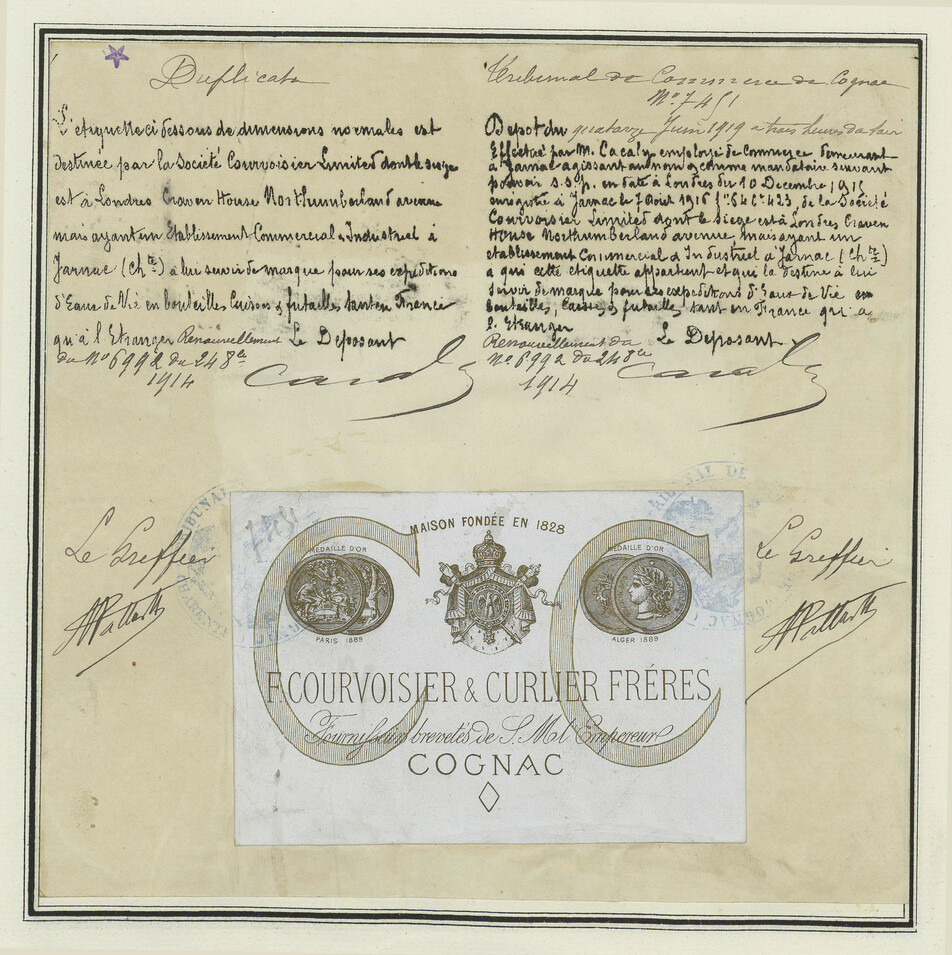 Duplicata
L'étiquette ci dessous de dimensions normales est
destinée par la Société Courvoisier Limited dont le siège
est à Londres Craven House Northumberland avenue
mais ayant un Etablissement Commercial & Industriel à
Jarnac (Chte) à lui servir de marque pour ses expéditions
d'Eaux de Vie en bouteilles Caisses & futailles tant en France
qu'à l'Etranger Renouvellement Le Déposant
du No 6992 du 24 8bre
1914
Tribunal de Commerce de Cognac
No 7451
Dépot du quatorze Juin 1919 à trois heures du soir
Effectué par M. Cacaly employé de Commerce demeurant
à Jarnac agissant au nom & comme mandataire suivant
pouvoir s.s.p. en date à Londres du 10 Décembre 1915
enregistré à Jarnac le 7 Août 1916 fo 64 Ce 423, de la Société
Courvoisier Limited dont le siège est à Londres Craven
House Northumberland avenue mais ayant un
etablissement Commercial & Industriel à Jarnac (Chte)
à qui cette etiquette appartient et qui la destine à lui
servir de marque pour ses expeditions d'Eaux de Vie en
bouteilles, Caisses & futailles tant en France qu'à
l'Etranger Le Déposant
Renouvellement du
No 6992 du 24 8bre
1914
Le Greffier
Le Greffier
7451
MAISON FONDÉE EN 1828
MÉDAILLE D'OR
PARIS 1889
MÉDAILLE D'OR
ALGER 1889
F. COURVOISIER & CURLIER FRÉRES
Fournisseurs brevetés de S. M. l'Empereur
COGNAC